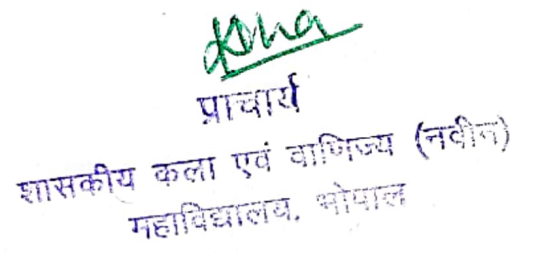 प्राचार्य
शासकीय कला एवं वाणिज्य (नवीन)
महाविद्यालय, भोपाल